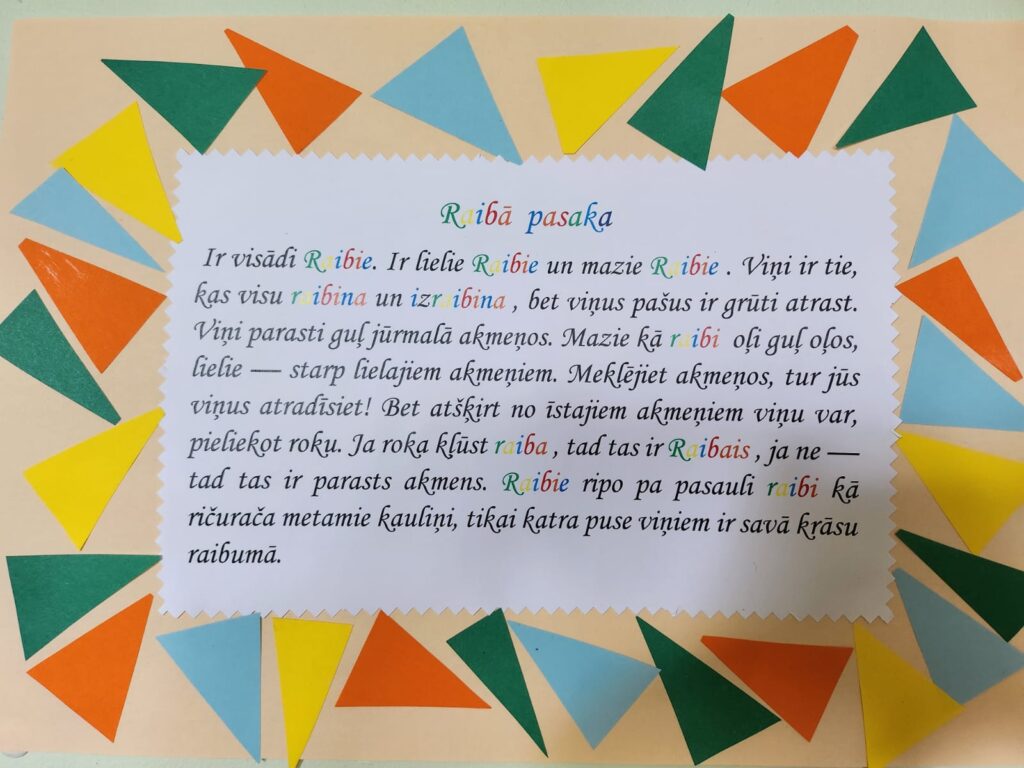 Raibā pasaka
Ir visādi Raibie. Ir lielie Raibie un mazie Raibie . Viņi ir tie,
kas visu raibina un izraibina , bet viņus pašus ir grūti atrast.
Viņi parasti guļ jūrmalā akmeņos. Mazie kā raibi oļi guļ oļos,
lielie — starp lielajiem akmeņiem. Meklējiet akmeņos, tur jūs
viņus atradīsiet! Bet atšķirt no īstajiem akmeņiem viņu var,
pieliekot roku. Ja roka kļūst raiba , tad tas ir Raibais , ja ne —
tad tas ir parasts akmens. Raibie ripo pa pasauli raibi kā
ričurača metamie kauliņi, tikai katra puse viņiem ir savā krāsu
raibumā.